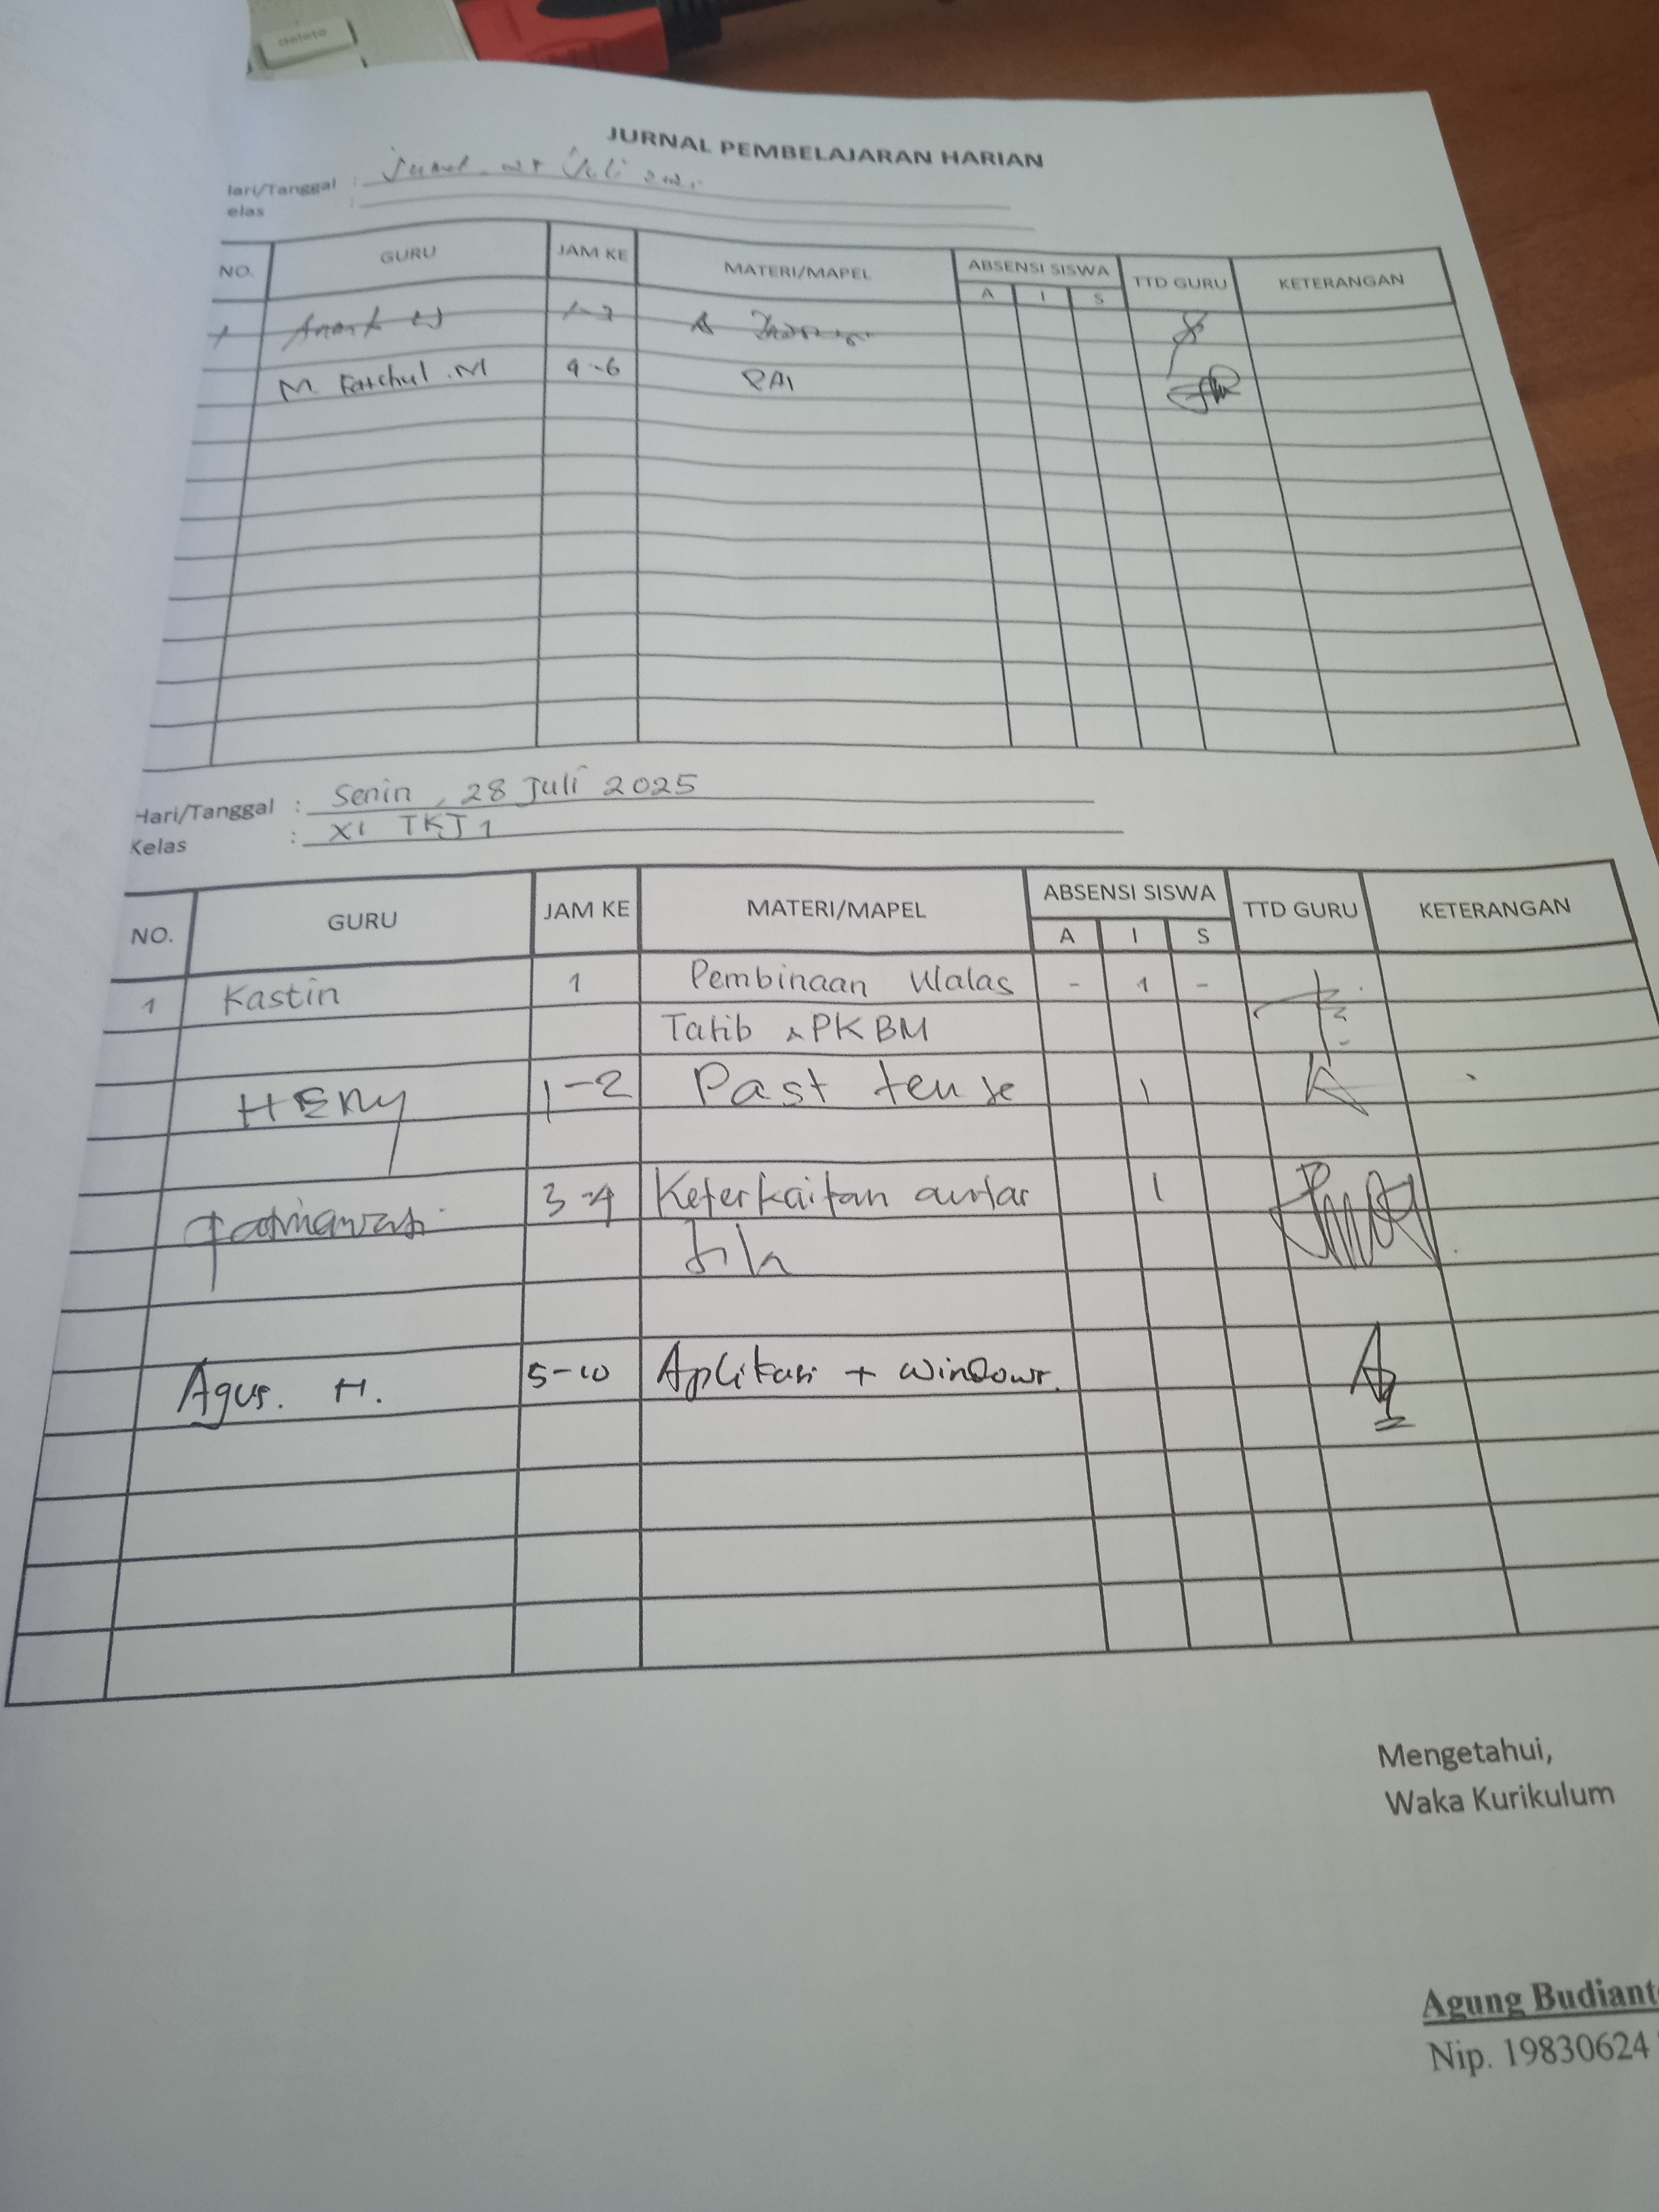 delete
JURNAL PEMBELAJARAN HARIAN
Hari/Tanggal : Jumat, Juli
elas :
NO. GURU JAM KE MATERI/MAPEL ABSENSI SISWA TTD GURU KETERANGAN
A I S
M. Fatchul .M 4-6 PAI
Hari/Tanggal : Senin, 28 Juli 2025
Kelas : XI TKJ 1
NO. GURU JAM KE MATERI/MAPEL ABSENSI SISWA TTD GURU KETERANGAN
A I S
1 Kastin 1 Pembinaan Walas - 1 -
Tatib & PKBM
HENY 1-2 Past tense 1
3-4 Keterkaitan antar 1
sila
Agus. H. 5-10 Aplikasi + windows.
Mengetahui,
Waka Kurikulum
Agung Budiant
Nip. 19830624